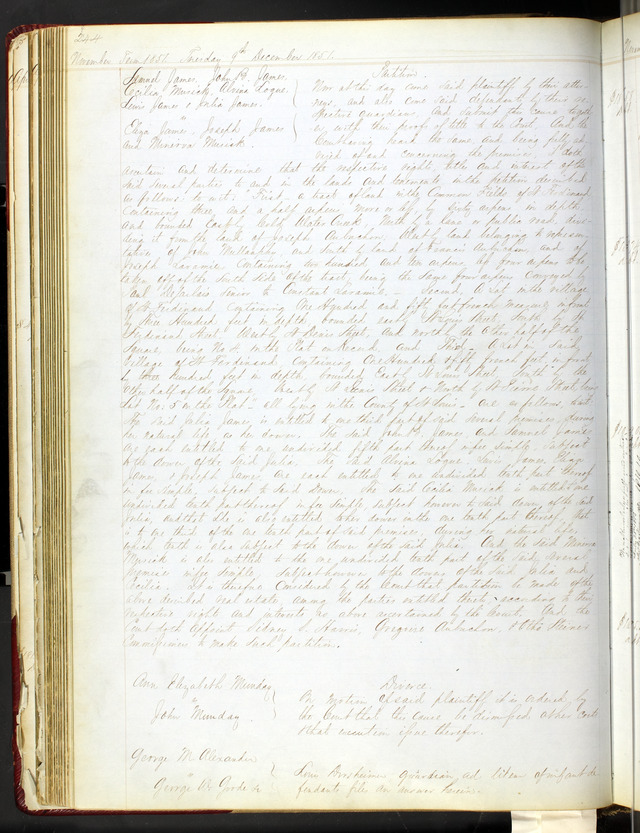 244
November Term 1851. Tuesday 9th December 1851.
Samuel James, John B. James, Partition.
Cecilia Musick, Alvina Logue, Now at this day come said plaintiffs by their attor-
Lewis James & Julia James. neys, and also come said defendants by their re-
vs spective guardian, and submit the cause
Eliza James, Joseph James with their proofs of title to the Court. And the
and Minerva Musick. Court having heard the same and being fully ad-
vised of and concerning the premises doth
ascertain and determine that the respective rights title and interest of the
said several parties to and in the lands and tenements in the petition described
as follows to wit: First a tract of land in the Common Fields of St Ferdinand,
containing three and a half arpens more or less by sixty arpens in depth
and bounded East by Cold Water Creek North by a lane or public road, divi-
ding it from the land of Joseph Aubuchon, West by land belonging to represen-
tatives of John Mullanphy, and South by land of Francis Aubuchon and of
Joseph Laramie containing two hundred and ten arpens, four arpens to be
taken off of the South side of the tract, being the same four arpens conveyed by
to Constant Laramie. Second, A lot in the village
of St Ferdinand containing One Hundred and fifty feet french measure in front
by three Hundred feet in depth, bounded East by Street South by St
Ferdinand Street West by St Louis Street, and north by the other half of the
Square, being No 4 in the Plat on Record, and Third, A lot in said
Village of St Ferdinand containing One Hundred & fifty french feet in front
by three hundred feet in depth, bounded East by St Louis Street South by the
other half of the Square, West by St Denis Street & North by Street being
Lot No. 5 in the Plat - all lying in the County of St Louis - are as follows, that
the said Julia James, is entitled to one third part of said several premises, during
her natural life as her dower. The said John B. James, and Samuel James
are each entitled to one undivided fifth part thereof in fee simple, subject
to the dower of the said Julia. The said Alvina Logue, Lewis James, Eliza
James, & Joseph James are each entitled to one undivided tenth part thereof
in fee simple, subject to said dower. The said Cecilia Musick is entitled to one
undivided tenth part thereof in fee simple, subject however to said dower of the said
Julia, and that she is also entitled to her dower in the one tenth part thereof, that
is to one third of the one tenth part of said premises, during her natural life,
which tenth is also subject to the dower of the said Julia. And the said Minerva
Musick is also entitled to the one undivided tenth part of the said several
premises in fee simple, subject however to the dower of the said Julia and
Cecilia. It is therefore considered by the Court that partition be made of the
above described real estate among the parties entitled thereto according to their
respective rights and interests as above ascertained by the Court. And the
Court doth appoint Sidney S. Harris, Gregoire Aubuchon, & Otho Hines
Commissioners to make such partition.
Ann Elizabeth Munday Divorce.
vs On motion of said plaintiff it is ordered by
John Munday. the Court that this cause be dismissed at her costs
& that execution issue therefor.
George M. Alexander
vs guardian ad litem of infant de-
George W. Goode & fendants files an answer herein.